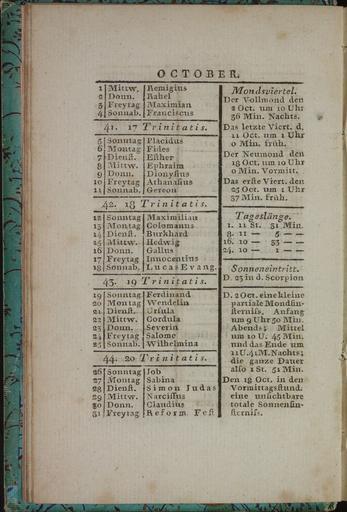 OCTOBER.
1 Mittw. Remigius
2 Donn. Rahel
3 Freytag Maximian
4 Sonnab. Franciscus
41. 17 Trinitatis.
5 Sonntag Placidus
6 Montag Fides
7 Dienſt. Eſther
8 Mittw. Ephraim
9 Donn. Dionyſius
10 Freytag Athanaſius
11 Sonnab. Gereon
42. 18 Trinitatis.
12 Sonntag Maximilian
13 Montag Colomanus
14 Dienſt. Burkhard
15 Mittw. Hedwig
16 Donn. Gallus
17 Freytag Innocentius
18 Sonnab. Lucas Evang.
43. 19 Trinitatis.
19 Sonntag Ferdinand
20 Montag Wendelin
21 Dienſt. Urſula
22 Mittw. Cordula
23 Donn. Severin
24 Freytag Salome
25 Sonnab. Wilhelmina
44. 20 Trinitatis.
26 Sonntag Job
27 Montag Sabina
28 Dienſt. Simon Judas
29 Mittw. Narciſſus
30 Donn. Claudius
31 Freytag Reform. Feſt
Mondsviertel.
Der Vollmond den
2 Oct. um 10 Uhr
36 Min. Nachts.
Das letzte Viert. d.
11 Oct. um 1 Uhr
0 Min. früh.
Der Neumond den
18 Oct. um 10 Uhr
0 Min. Vormitt.
Das erſte Viert. den
25 Oct. um 1 Uhr
37 Min. früh.
Tageslänge.
1. 11 St. 31 Min.
8. 11 — 5 — —
16. 10 — 33 — —
24. 10 — 1 — —
Sonneneintritt.
D. 23 in d. Scorpion
D. 2 Oct. eine kleine
partiale Mondfin-
ſterniſs, Anfang
um 9 Uhr 50 Min.
Abends; Mittel
um 10 U. 45 Min.
und das Ende um
11 U. 41 M. Nachts;
die ganze Dauer
alſo 1 St. 51 Min.
Den 18 Oct. in den
Vormittagſtund.
eine unſichtbare
totale Sonnenfin-
ſterniſs.